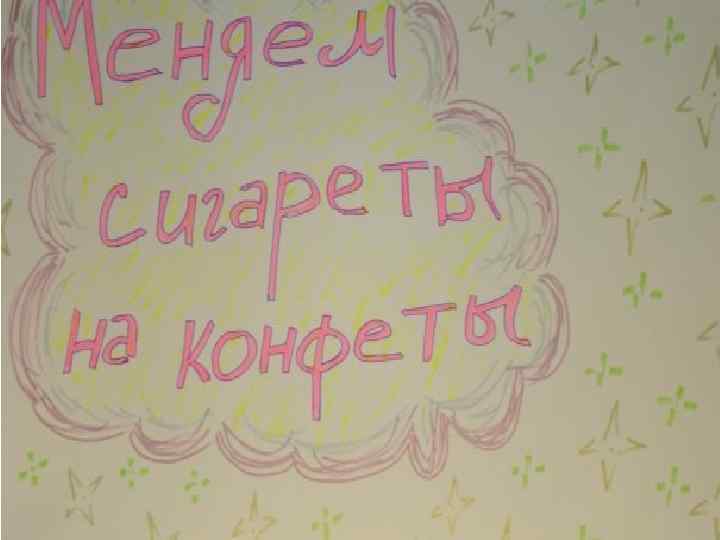 Меняем
сигареты
на конфеты